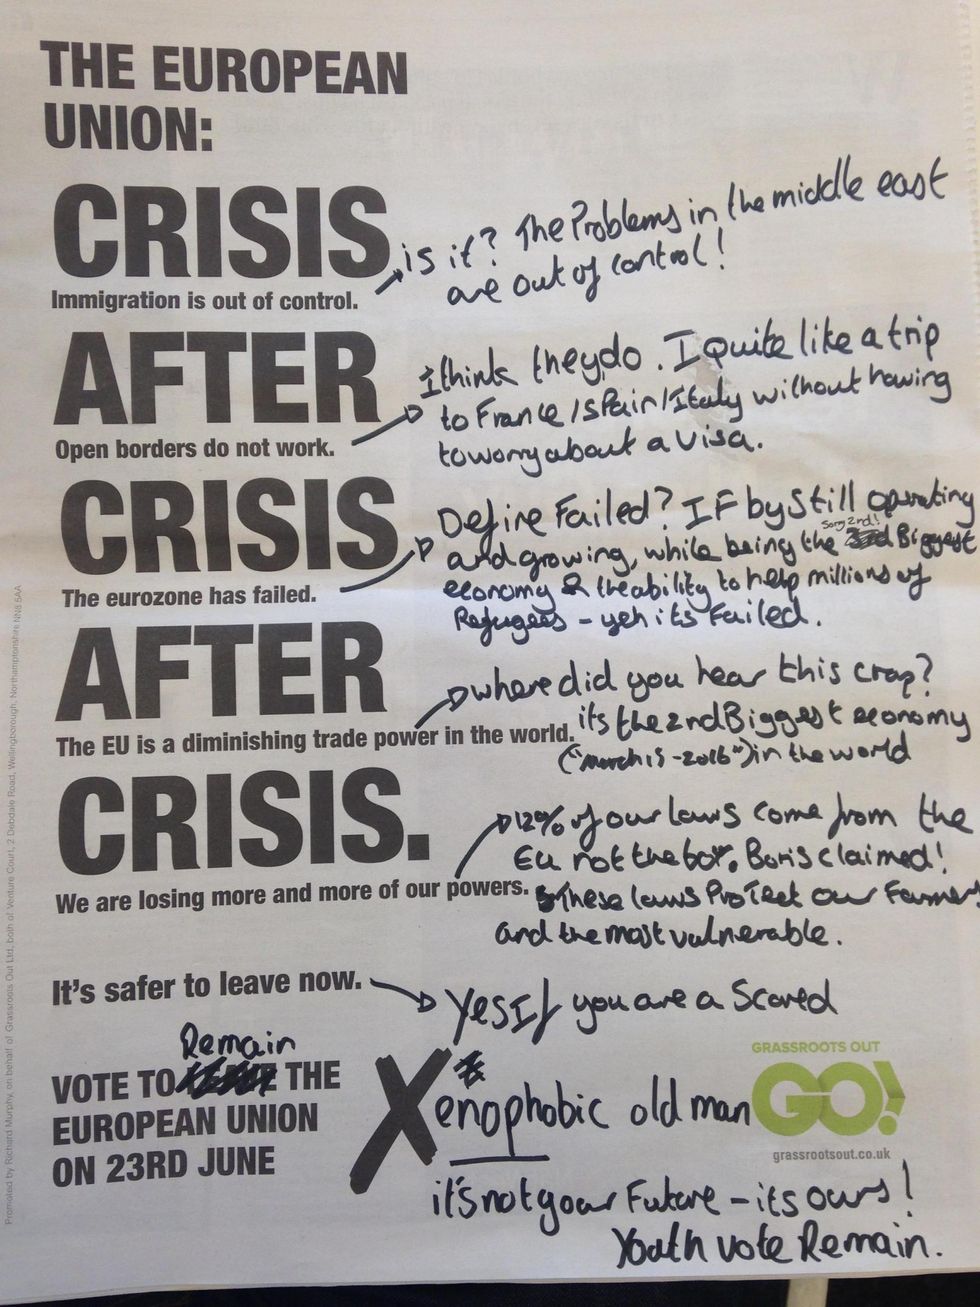 THE EUROPEAN
UNION:
CRISIS
Immigration is out of control.
is it? The Problems in the middle east
are out of control!
AFTER
Open borders do not work.
I think they do. I quite like a trip
to France/Spain/Italy without having
to worry about a visa.
CRISIS
The eurozone has failed.
Define Failed? IF by Still operating
and growing, while being the Sorry 2nd! Biggest
economy & the ability to help millions of
Refugees - yeh its Failed.
AFTER
The EU is a diminishing trade power in the world.
where did you hear this crap?
its the 2nd Biggest economy
("march 15 - 2016") in the world
CRISIS.
We are losing more and more of our powers.
12% of our laws come from the
EU not the 60%. Boris claimed!
These laws ProTect our Farmers
and the most vulnerable.
It's safer to leave now.
Yes If you are a Scared
Xenophobic old man
Remain
VOTE TO THE
EUROPEAN UNION
ON 23RD JUNE
GRASSROOTS OUT
GO!
grassrootsout.co.uk
it's not your Future - its ours!
Youth vote Remain.
Promoted by Richard Murphy, on behalf of Grassroots Out Ltd, both of Venture Court, 2 Debdale Road, Wellingborough, Northamptonshire NN8 5AA